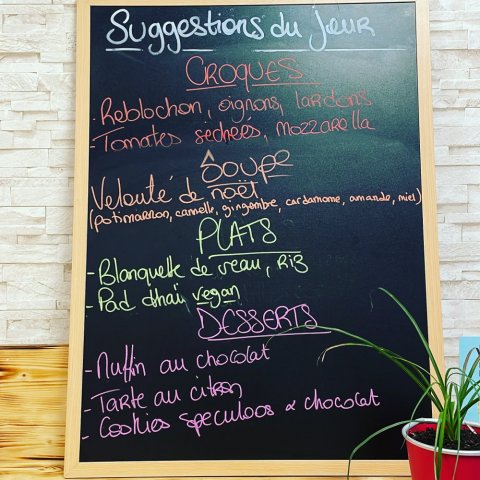 Suggestions du jour
CROQUES
- Reblochon, oignons, lardons
- Tomates sechées, mozzarella
Soupe
Velouté de noël
(potimarron, cannelle, gingembre, cardamome, amande, miel)
PLATS
- Blanquette de veau, Riz
- Pad thaï vegan
DESSERTS
- Muffin au chocolat
- Tarte au citron
- Cookies speculoos & chocolat